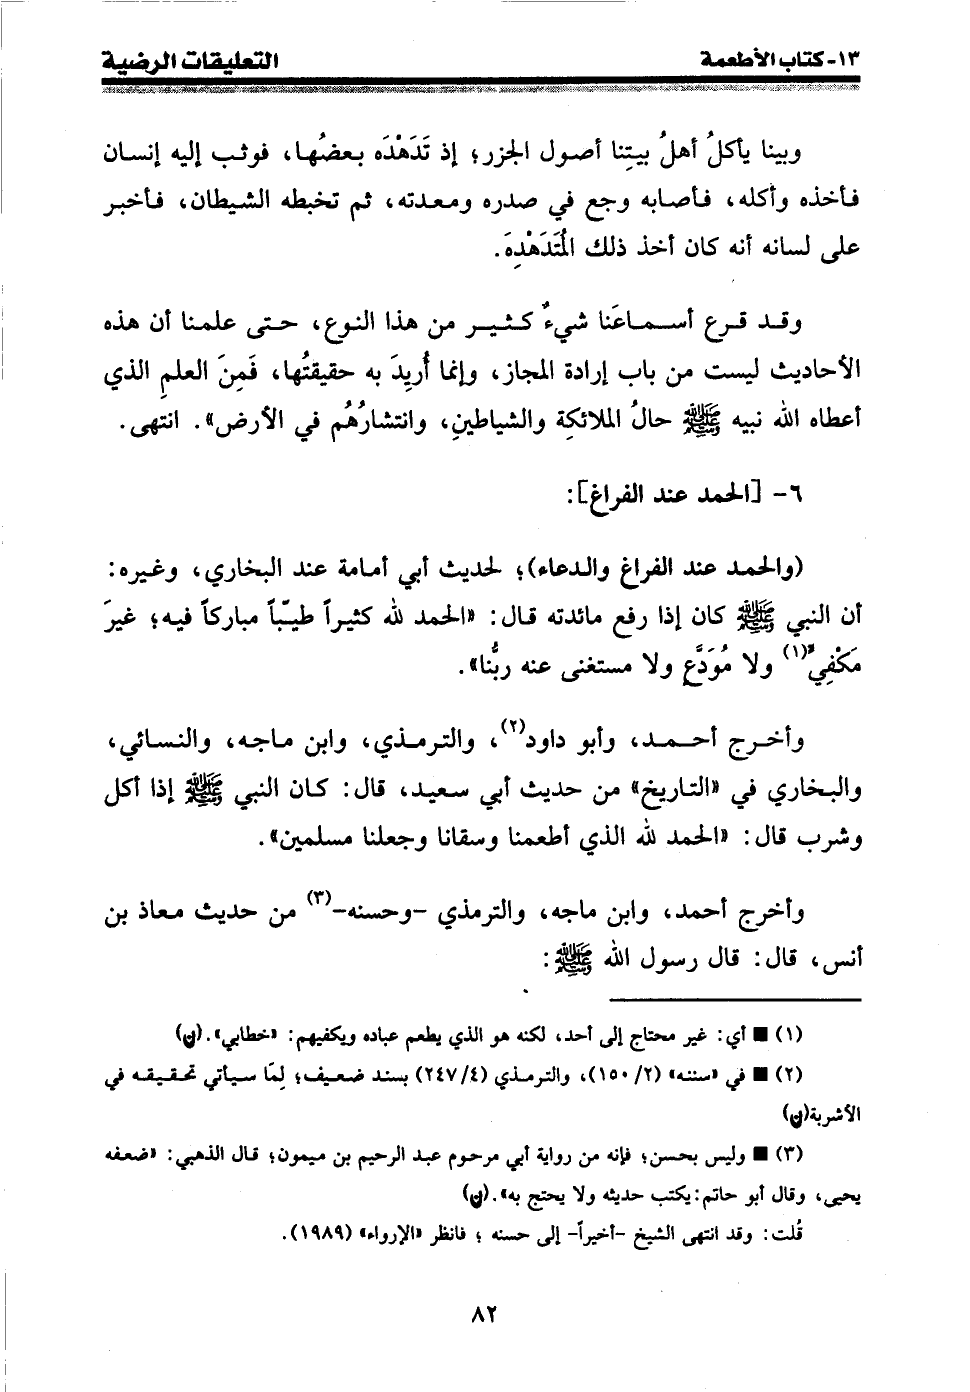 ١٣- كتاب الأطعمة
التعليقات الرضية
وبينا يأكلُ أهلُ بيتِنا أصول الجزر؛ إذ تَدَهْدَه بعضُها، فوثب إليه إنسان
فأخذه وأكله، فأصابه وجع في صدره ومعدته، ثم تخبطه الشيطان، فأخبر
على لسانه أنه كان أخذ ذلك المُتَدَهْدِهَ.
وقد قرع أسماعَنا شيءٌ كثير من هذا النوع، حتى علمنا أن هذه
الأحاديث ليست من باب إرادة المجاز، وإنما أُريدَ به حقيقتُها، فَمِنَ العلمِ الذي
أعطاه الله نبيه ﷺ حالُ الملائكِة والشياطينِ، وانتشارُهُم في الأرض». انتهى.
٦- [الحمد عند الفراغ]:
(والحمد عند الفراغ والدعاء)؛ لحديث أبي أمامة عند البخاري، وغيره:
أن النبي ﷺ كان إذا رفع مائدته قال: «الحمد لله كثيراً طيّباً مباركاً فيه؛ غيرَ
مَكْفِيٍّ(١) ولا مُوَدَّعٍ ولا مستغنى عنه ربُّنا».
وأخرج أحمد، وأبو داود(٢)، والترمذي، وابن ماجه، والنسائي،
والبخاري في «التاريخ» من حديث أبي سعيد، قال: كان النبي ﷺ إذا أكل
وشرب قال: «الحمد لله الذي أطعمنا وسقانا وجعلنا مسلمين».
وأخرج أحمد، وابن ماجه، والترمذي -وحسنه-(٣) من حديث معاذ بن
أنس، قال: قال رسول الله ﷺ:
(١) ■ أي: غير محتاج إلى أحد، لكنه هو الذي يطعم عباده ويكفيهم: «خطابي».(ن)
(٢) ■ في «سننه» (٢/ ١٥٠)، والترمذي (٤/ ٢٤٧) بسند ضعيف؛ لِمَا سيأتي تحقيقه في
الأشربة(ن)
(٣) ■ وليس بحسن؛ فإنه من رواية أبي مرحوم عبد الرحيم بن ميمون؛ قال الذهبي: «ضعفه
يحيى، وقال أبو حاتم:يكتب حديثه ولا يحتج به».(ن)
قُلت: وقد انتهى الشيخ -أخيراً- إلى حسنه ؛ فانظر «الإرواء» (١٩٨٩).
٨٢